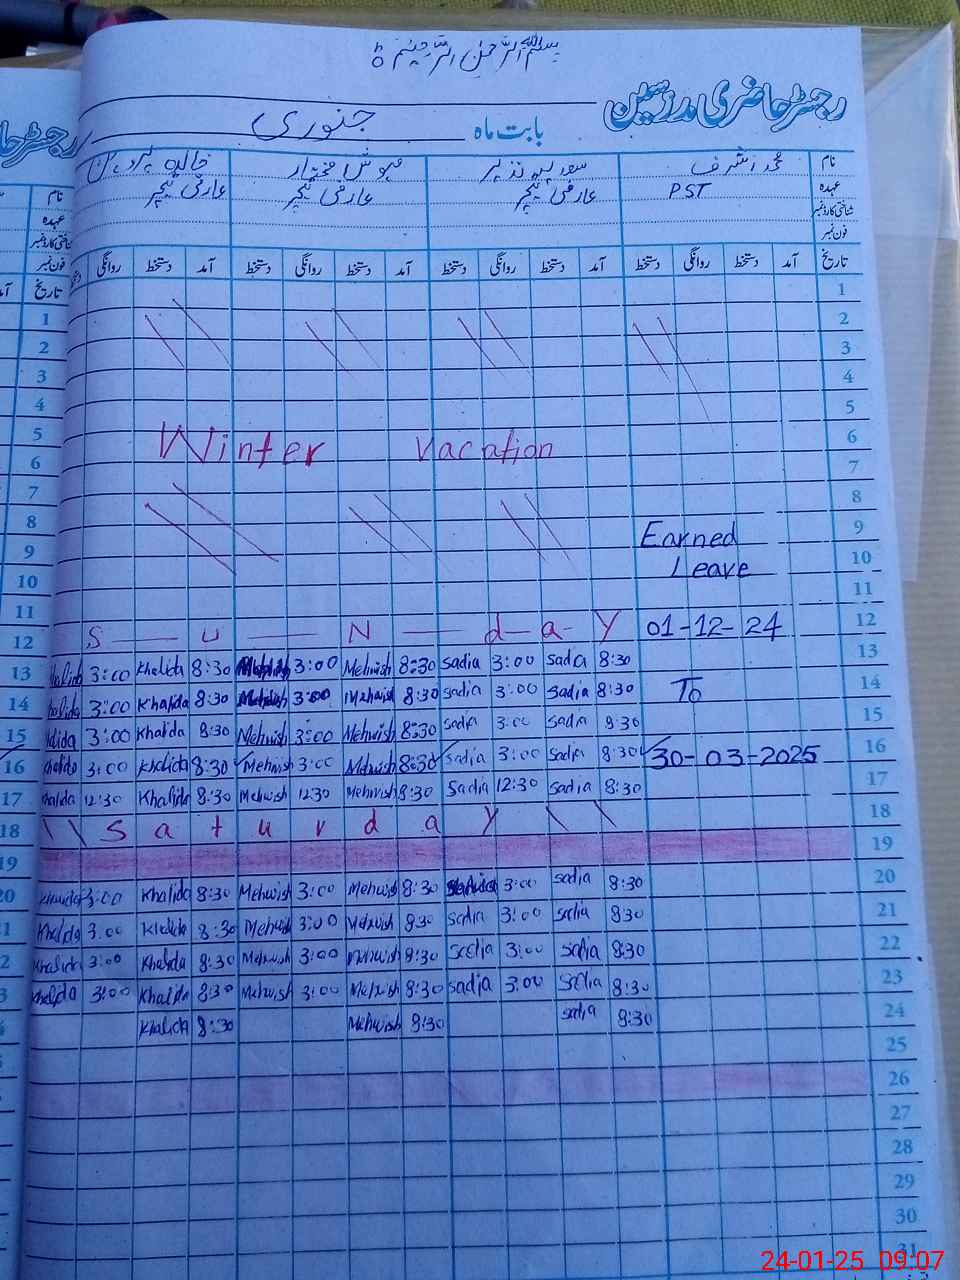 بسم اللہ الرحمن الرحیم
رجسٹر حاضری مدرسین
بابت ماہ جنوری
نام محمد اشرف سعدیہ نذیر مہوش مختار خالدہ پروین
عہدہ PST عارضی ٹیچر عارضی ٹیچر عارضی ٹیچر
شناختی کارڈ نمبر
فون نمبر
تاریخ آمد دستخط روانگی دستخط آمد دستخط روانگی دستخط آمد دستخط روانگی دستخط آمد دستخط روانگی
1
2
3
4
5
Winter Vacation 6
7
8
Earned 9
Leave 10
11
S u N d a y 01-12-24 12
Khalida 3:00 Khalida 8:30 3:00 Mehwish 8:30 Sadia 3:00 Sadia 8:30 13
Khalida 3:00 Khalida 8:30 Mehwish 3:00 Mehwish 8:30 Sadia 3:00 Sadia 8:30 To 14
Khalida 3:00 Khalida 8:30 Mehwish 3:00 Mehwish 8:30 Sadia 3:00 Sadia 8:30 15
Khalida 3:00 Khalida 8:30 Mehwish 3:00 Mehwish 8:30 Sadia 3:00 Sadia 8:30 30-03-2025 16
Khalida 12:30 Khalida 8:30 Mehwish 12:30 Mehwish 8:30 Sadia 12:30 Sadia 8:30 17
S a t u r d a y 18
19
Khalida 3:00 Khalida 8:30 Mehwish 3:00 Mehwish 8:30 3:00 Sadia 8:30 20
Khalida 3:00 Khalida 8:30 Mehwish 3:00 Mehwish 8:30 Sadia 3:00 Sadia 8:30 21
Khalida 3:00 Khalida 8:30 Mehwish 3:00 Mehwish 8:30 Sadia 3:00 Sadia 8:30 22
Khalida 3:00 Khalida 8:30 Mehwish 3:00 Mehwish 8:30 Sadia 3:00 Sadia 8:30 23
Khalida 8:30 Mehwish 8:30 Sadia 8:30 24
25
26
27
28
29
30
31
رجسٹر حا
نام
عہدہ
شناختی کارڈ نمبر
فون نمبر
تاریخ
1
2
3
4
5
6
7
8
9
10
11
12
13
14
15
16
17
18
19
20
24-01-25 09:07